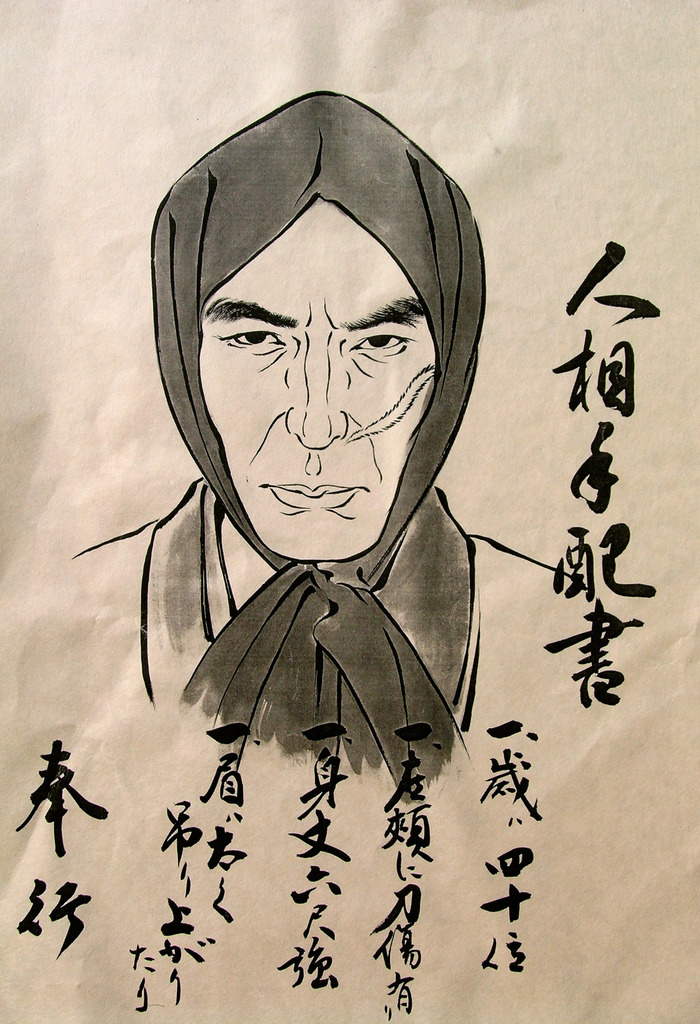 人相手配書
一、歳ハ四十位
一、左頬に刀傷有リ
一、身丈六尺強
一、眉ハ太く
吊り上がり
たり
奉行